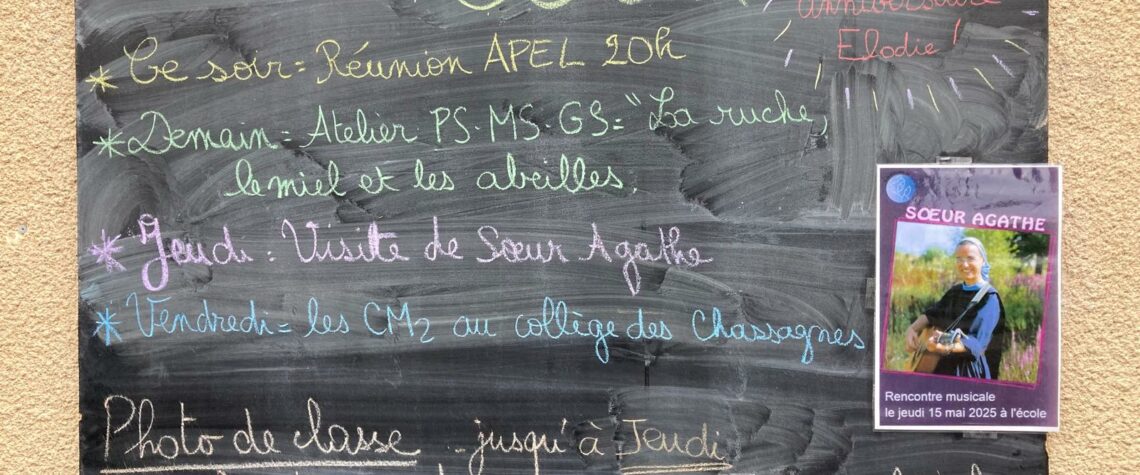 Anniversaire
Elodie !
* Ce soir = Réunion APEL 20h
* Demain = Atelier PS-MS-GS = "La ruche,
le miel et les abeilles.
* Jeudi : Visite de Sœur Agathe
* Vendredi = les CM2 au collège des Chassagnes
SŒUR AGATHE
Rencontre musicale
le jeudi 15 mai 2025 à l'école
Photo de classe .. jusqu'à Jeudi